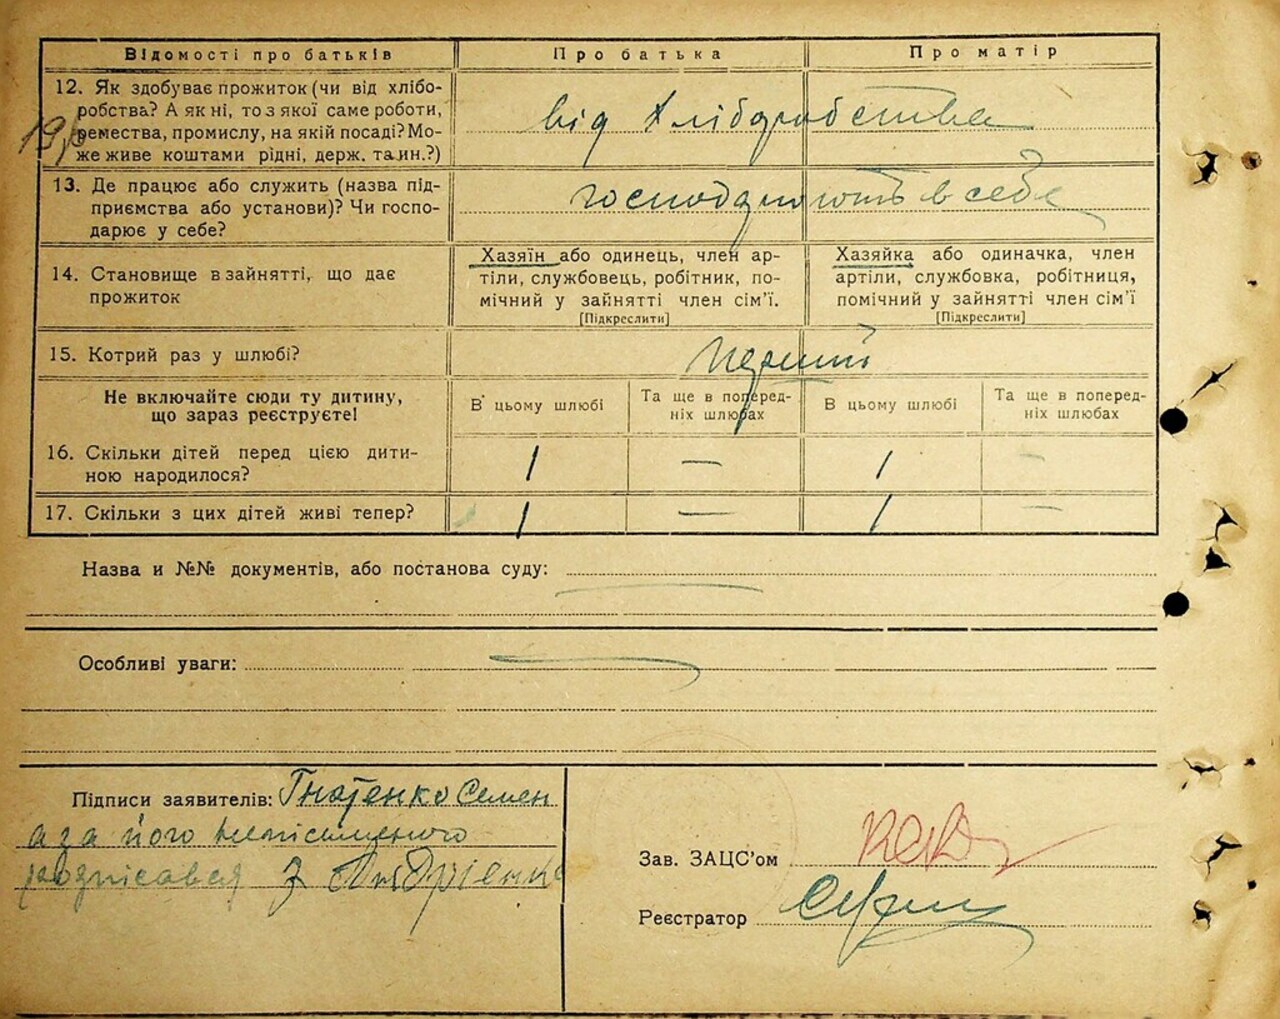 Відомості про батьків Про батька Про матір
12. Як здобуває прожиток (чи від хлібо-
робства? А як ні, то з якої саме роботи,
ремества, промислу, на якій посаді? Мо-
же живе коштами рідні, держ. та ин.?)
від хліборобства
13. Де працює або служить (назва під-
приємства або установи)? Чи госпо-
дарює у себе?
господарюють в себе
14. Становище в зайнятті, що дає
прожиток
Хазяїн або одинець, член ар-
тіли, службовець, робітник, по-
мічний у зайнятті член сім'ї.
[Підкреслити]
Хазяйка або одиначка, член
артіли, службовка, робітниця,
помічний у зайнятті член сім'ї
[Підкреслити]
15. Котрий раз у шлюбі?
перший
Не включайте сюди ту дитину,
що зараз реєструєте!
В цьому шлюбі
Та ще в поперед-
ніх шлюбах
В цьому шлюбі
Та ще в поперед-
ніх шлюбах
16. Скільки дітей перед цією дити-
ною народилося?
1 — 1 —
17. Скільки з цих дітей живі тепер?
1 — 1 —
Назва и №№ документів, або постанова суду:
Особливі уваги:
Підписи заявителів: Гнатенко Семен
а за його неписьменого
Зав. ЗАЦС'ом
Реєстратор